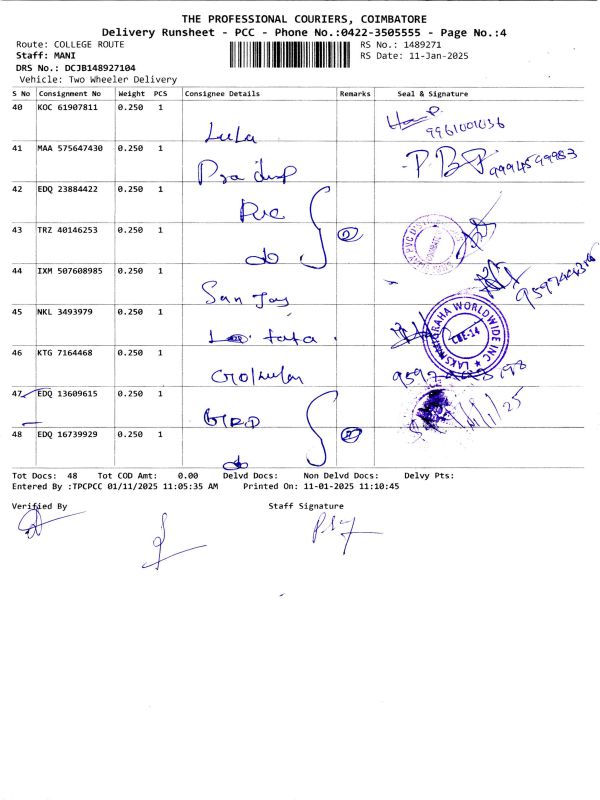 THE PROFESSIONAL COURIERS, COIMBATORE
Delivery Runsheet - PCC - Phone No.:0422-3505555 - Page No.:4
Route: COLLEGE ROUTE RS No.: 1489271
Staff: MANI RS Date: 11-Jan-2025
DRS No.: DCJB148927104
Vehicle: Two Wheeler Delivery
S No Consignment No Weight PCS Consignee Details Remarks Seal & Signature
40 KOC 61907811 0.250 1
Lula 9961001036
41 MAA 575647430 0.250 1
Pradeep 9994599983
42 EDQ 23884422 0.250 1
PVC
43 TRZ 40146253 0.250 1 2
do
44 IXM 507608985 0.250 1
Sanjay
45 NKL 3493979 0.250 1
LAKSHMIGRAHA WORLDWIDE INC
CBE-14
46 KTG 7164468 0.250 1
Gokulan
47 EDQ 13609615 0.250 1
11/1/25
48 EDQ 16739929 0.250 1 2
do
Tot Docs: 48 Tot COD Amt: 0.00 Delvd Docs: Non Delvd Docs: Delvy Pts:
Entered By :TPCPCC 01/11/2025 11:05:35 AM Printed On: 11-01-2025 11:10:45
Verified By Staff Signature